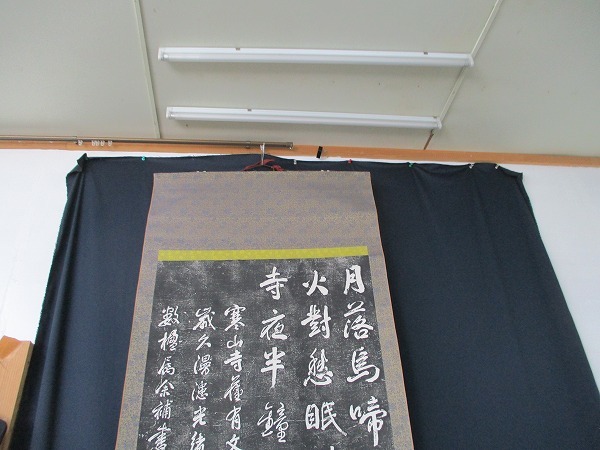 月落烏啼
火對愁眠
寺夜半鐘
寒山寺舊有文
歲久漫漶光緒
數楹属余補書